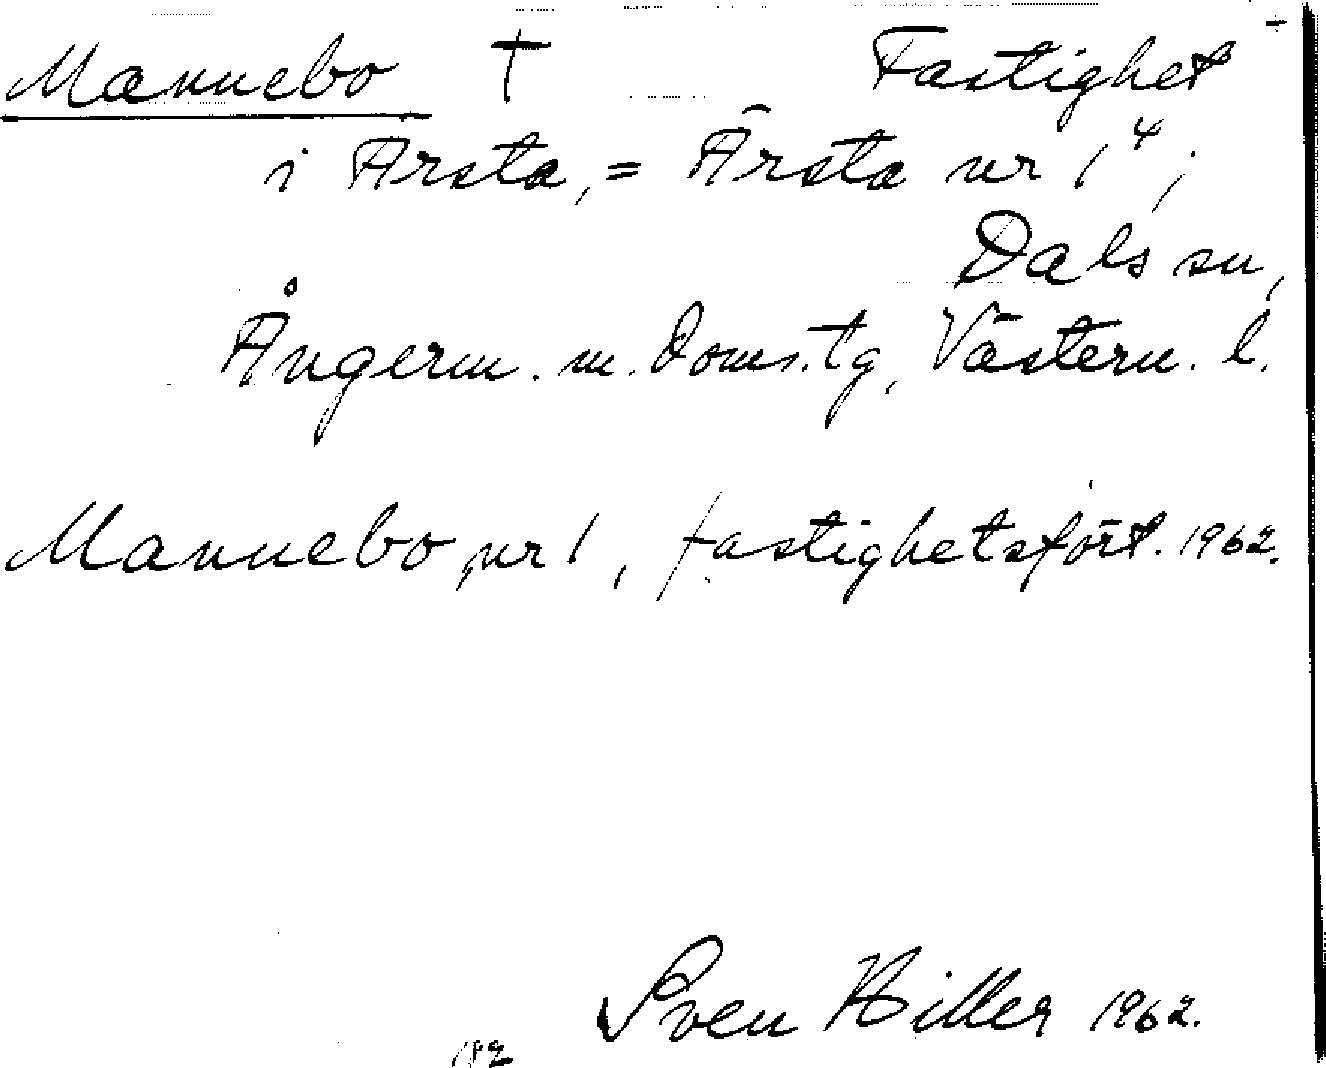 Mannebo †  Fastighet
i Ärsta, = Ärsta nr 1⁴;
Dals sn,
Ångerm. m. doms.tg, Västern. l.
Mannebo nr 1, fastighetsfört. 1962.
Sven Hiller 1962.
182